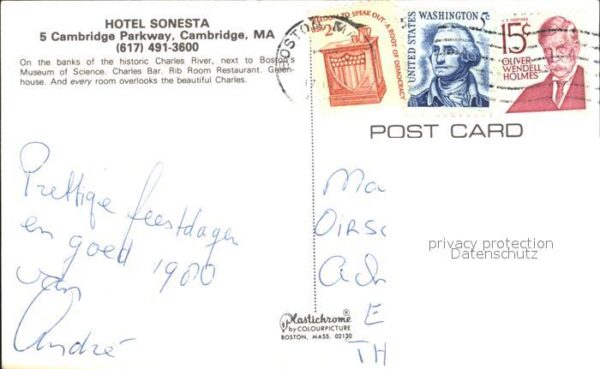 HOTEL SONESTA
5 Cambridge Parkway, Cambridge, MA
(617) 491-3600
On the banks of the historic Charles River, next to Boston's
Museum of Science. Charles Bar. Rib Room Restaurant. Green-
house. And every room overlooks the beautiful Charles.
BOSTON, MA
FREEDOM TO SPEAK OUT A ROOT OF DEMOCRACY
USA 2c
UNITED STATES
WASHINGTON 5c
U.S. POSTAGE
15c
OLIVER
WENDELL
HOLMES
POST CARD
Prettige feestdagen
en goed 1980
van
André
Ma
OIRSC
Ach
E
TH
privacy protection
Datenschutz
Plastichrome
by COLOURPICTURE
BOSTON, MASS. 02130